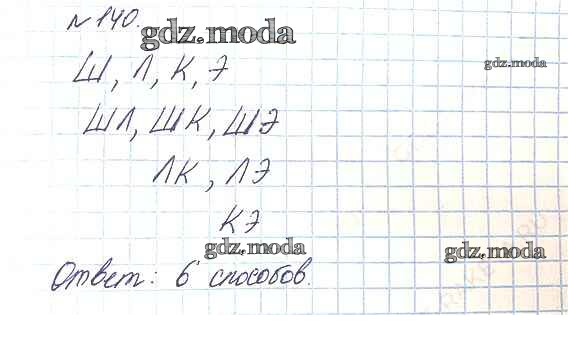 № 140.
gdz.moda
gdz.moda
Ш, Л, К, Э
ШЛ, ШК, ШЭ
ЛК, ЛЭ
КЭ
gdz.moda
gdz.moda
Ответ: 6 способов.